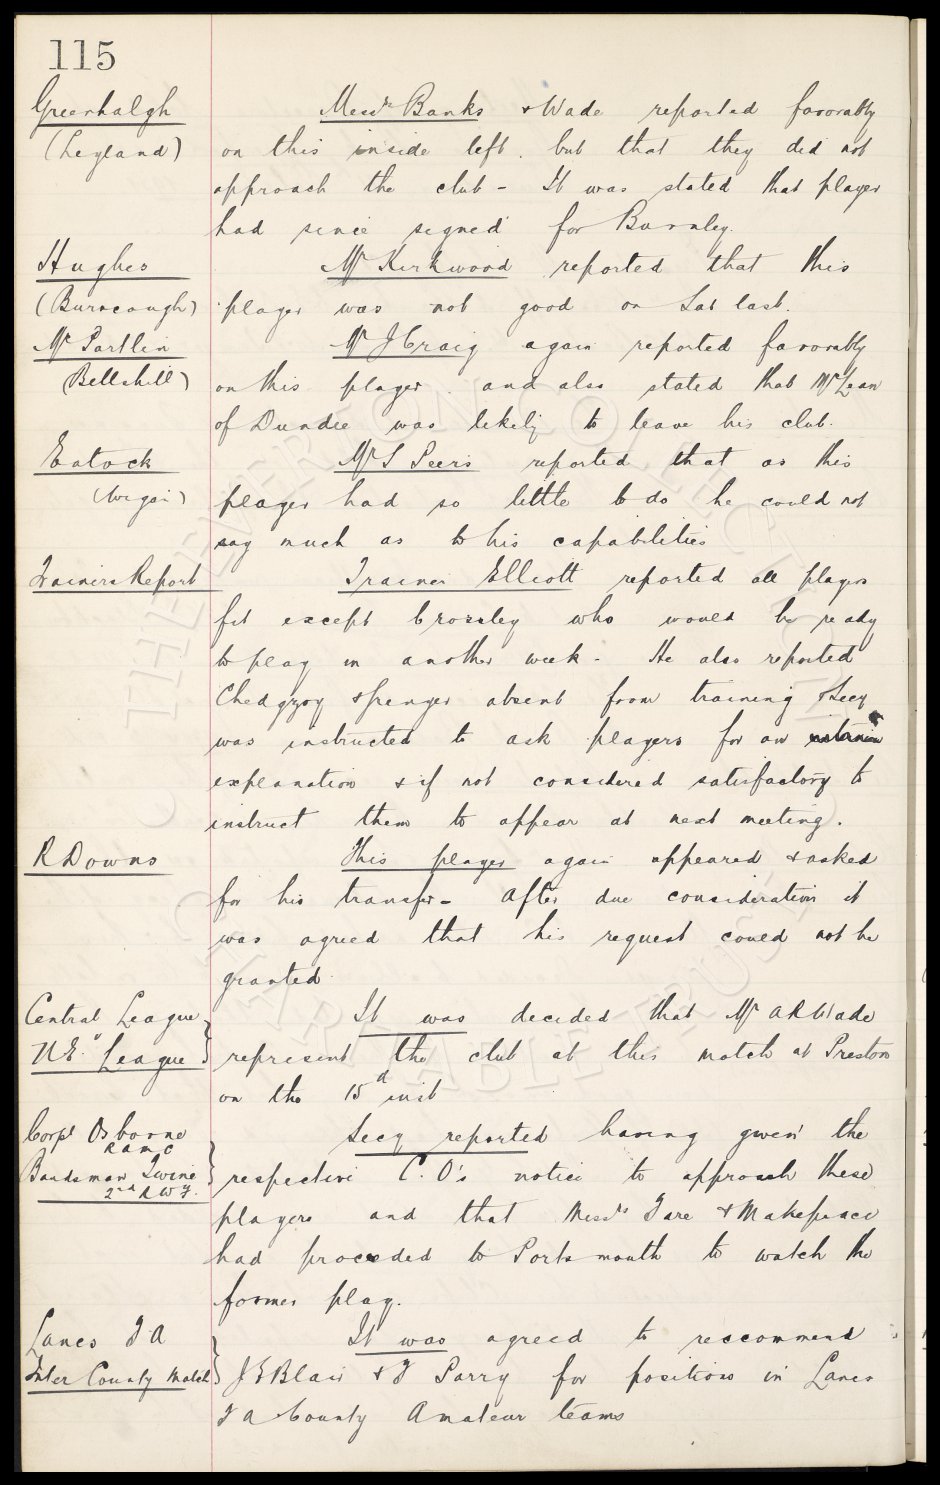 115
Greenhalgh
(Leyland)
Messrs Banks & Wade reported favorably
on this inside left. but that they did not
approach the club - It was stated that player
had since signed for Burnley.
Hughes
(Burscough)
Mr Kirkwood reported that this
player was not good on Sat last.
Mc Partlin
(Bellshill)
Mr J Craig again reported favorably
on this player. and also stated that McLean
of Dundee was likely to leave his club.
Eatock
(Wigan)
Mr S Peers reported that as this
player had so little to do he could not
say much as to his capabilities
Trainers Report
Trainer Elliott reported all players
fit except Crossley who would be ready
to play in another week - He also reported
Chedgzoy & Spencer absent from training & Secy
was instructed to ask players for an
explanation & if not considered satisfactory to
instruct them to appear at next meeting.
R Downs
This player again appeared & asked
for his transfer - After due consideration it
was agreed that his request could not be
granted
Central League
N.E. " League
It was decided that Mr A R Wade
represent the club at this match at Preston
on the 15th inst
Corpl Osborne
R A M C
Bandsman
2nd R W F.
Secy reported having given the
respective C.O's notice to approach these
players and that Messrs Fare & Makepeace
had proceeded to Portsmouth to watch the
former play.
Lancs F A
Inter County Match
It was agreed to reccommend
J E Blair & F Parry for positions in Lancs
F A County Amateur teams
THE EVERTON COLLECTION
CHARITABLE TRUST